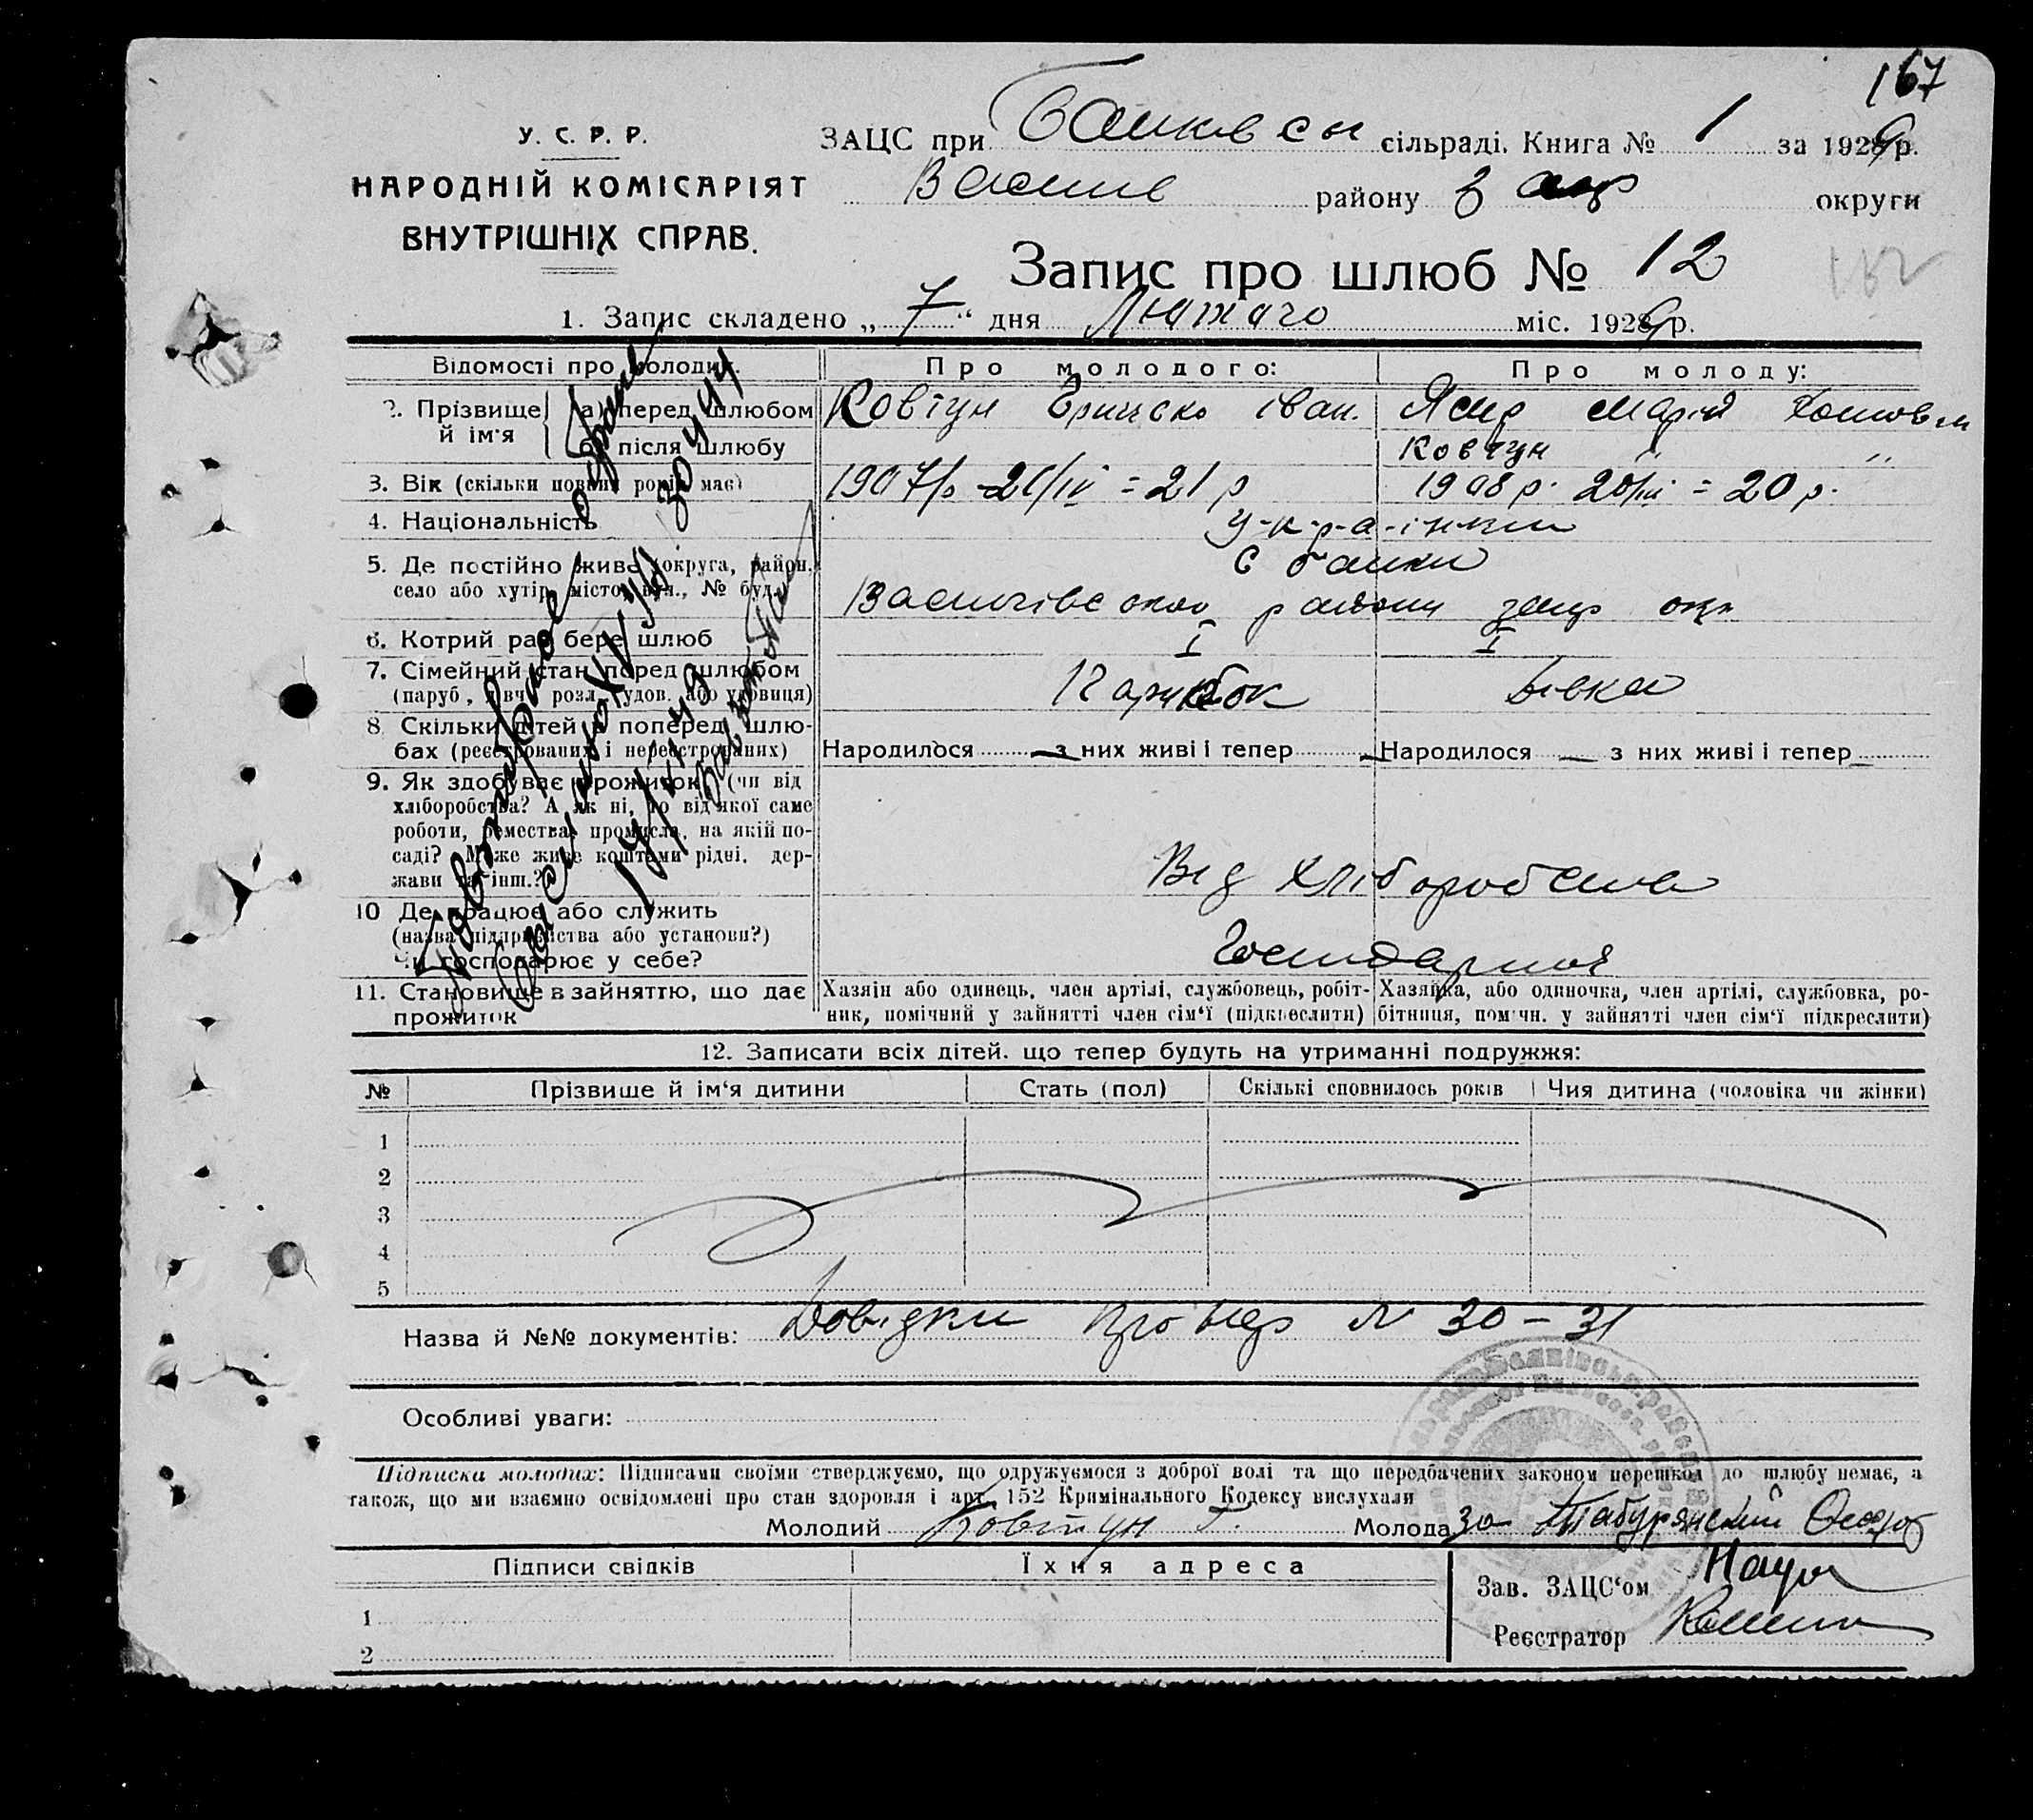 167
У. С. Р. Р.
НАРОДНІЙ КОМІСАРІЯТ
ВНУТРІШНІХ СПРАВ.
ЗАЦС при сільраді. Книга № 1 за 1929 р.
Васил району Зап округи
Запис про шлюб № 12
162
1. Запис складено „ 7 “ дня Лютого міс. 1929 р.
Відомості про молодих. Про молодого: Про молоду:
2. Прізвище й ім'я а) перед шлюбом Ковтун Грицько Іван. Марія
б) після шлюбу Ковтун "
3. Вік (скільки повних років має) 1907 р. = 21 р 1908 р. = 20 р.
4. Національність У-к-р-а-ї-н-ці
5. Де постійно живе (округа, район, село або хутір, місто, вул., № буд.) с Балки
Василівського району запр окр
6. Котрий раз бере шлюб I I
7. Сімейний стан перед шлюбом Парубок Дівка
(паруб., дівч., розл., удов. або удовиця)
8. Скільки дітей в поперед. шлюбах (реєстрованих і нереєстрованих) Народилося — з них живі і тепер — Народилося — з них живі і тепер —
9. Як здобуває прожиток (чи від
хліборобства? А як ні, то від якої саме
роботи, ремества, промисла, на якій по-
саді? Може живе коштами рідні, дер-
жави та інш.?) Від хліборобства
10 Де працює або служить
(назва підприємства або установи?)
Чи господарює у себе? Господарює
11. Становище в зайняттю, що дає Хазяїн або одинець, член артілі, службовець, робіт- Хазяйка, або одиночка, член артілі, службовка, ро-
прожиток ник, помічний у зайнятті член сім'ї (підкреслити) бітниця, помічн. у зайнятті член сім'ї підкреслити)
Повторное
14/XI 49
12. Записати всіх дітей, що тепер будуть на утриманні подружжя:
№ Прізвище й ім'я дитини Стать (пол) Скількі сповнилось років Чия дитина (чоловіка чи жінки)
1
2
3
4
5
Назва й №№ документів: Довідки про нар № 30 – 31
Особливі уваги:
Підписка молодих: Підписами своїми стверджуємо, що одружуємося з доброї волі та що передбачених законом перешкод до шлюбу немає, а
також, що ми взаємно освідомлені про стан здоровля і арт. 152 Кримінального Кодексу вислухали
Молодий Ковтун Г. Молода за Табурянский
Підписи свідків Їхня адреса
Зав. ЗАЦС'ом
1
Реєстратор
2